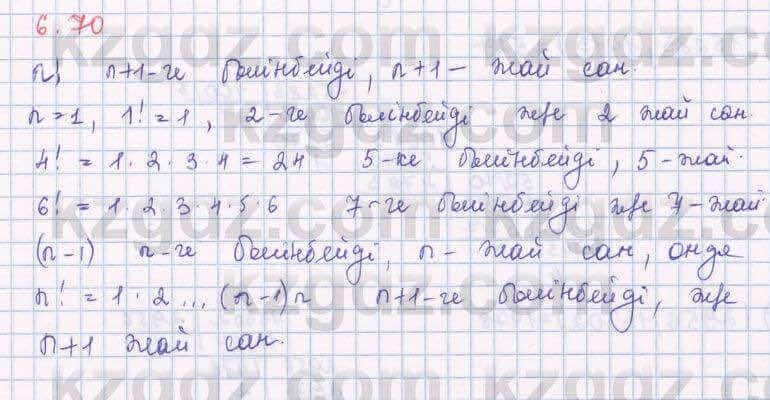 6.70
n! n+1-ге бөлінбейді, n+1 - жай сан.
n=1, 1! = 1, 2-ге бөлінбейді және 2 жай сан.
4! = 1·2·3·4 = 24 5-ке бөлінбейді, 5-жай.
6! = 1·2·3·4·5·6 7-ге бөлінбейді және 7-жай
(n-1) n-ге бөлінбейді, n - жай сан, онда
n! = 1·2...(n-1)n n+1-ге бөлінбейді, және
n+1 жай сан.
kzgdz.com